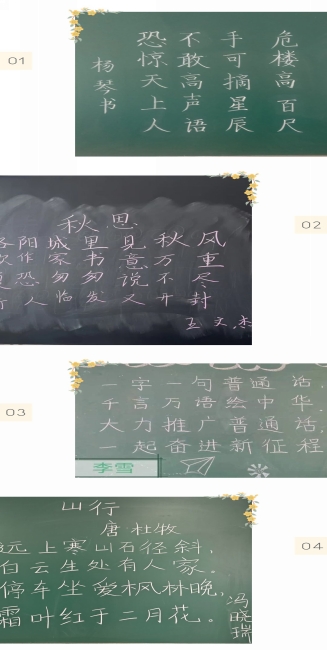 01
危楼高百尺
手可摘星辰
不敢高声语
恐惊天上人
杨琴书
02
秋思
阳城里见秋风
作家书意万重
恐匆匆说不尽
人临发又开封
03
一字一句普通话,
千言万语绘中华.
大力推广普通话,
一起奋进新征程
李雪
04
山行
唐 杜牧
远上寒山石径斜,
白云生处有人家。
停车坐爱枫林晚,
霜叶红于二月花。
冯晓瑞